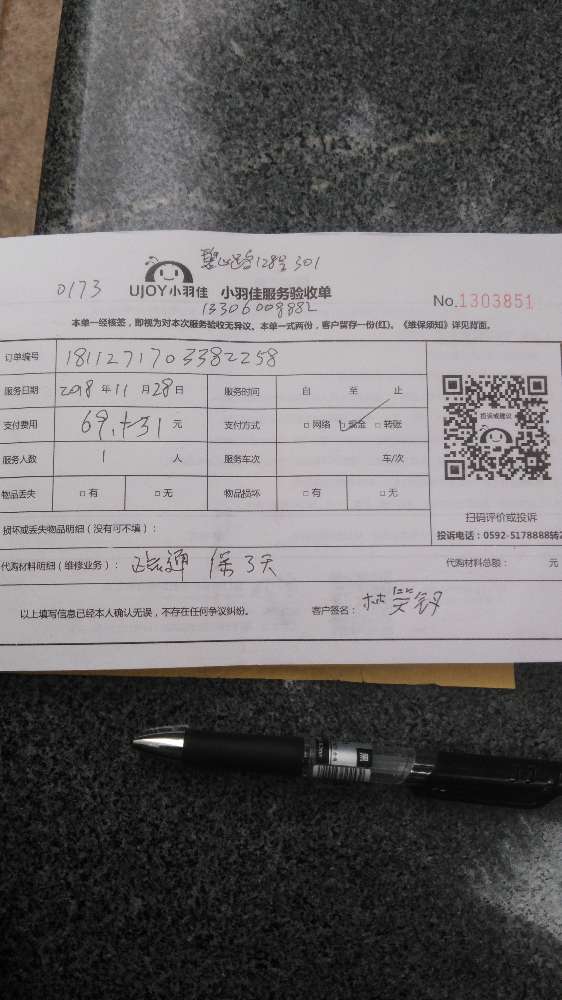 碧山路128号301
0173 UJOY小羽佳 小羽佳服务验收单
13306008882
No.1303851
本单一经核签，即视为对本次服务验收无异议、本单一式两份，客户留存一份(红)。《维保须知》详见背面。
订单编号 1811271703382258
服务日期 2018 年 11 月 28 日 服务时间 自 至 止
支付费用 69.+31 元 支付方式 □ 网络 □ 现金 □ 转账
服务人数 1 人 服务车次 车/次
物品丢失 □ 有 □ 无 物品损坏 □ 有 □ 无
投诉或建议
扫码评价或投诉
投诉电话：0592-5178888转2
损坏或丢失物品明细（没有可不填）：
代购材料明细（维修业务）： 疏通 保3天 代购材料总额： 元
以上填写信息已经本人确认无误，不存在任何争议纠纷。 客户签名：林